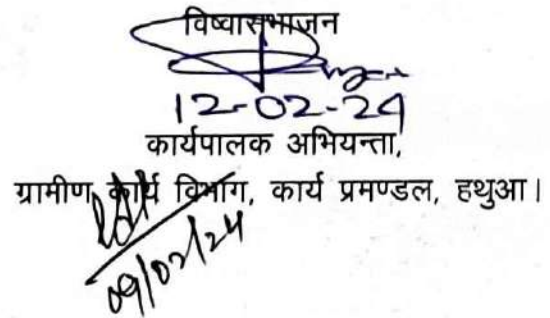 विष्वासभाजन
12-02-24
कार्यपालक अभियन्ता,
ग्रामीण कार्य विभाग, कार्य प्रमण्डल, हथुआ।
09/02/24